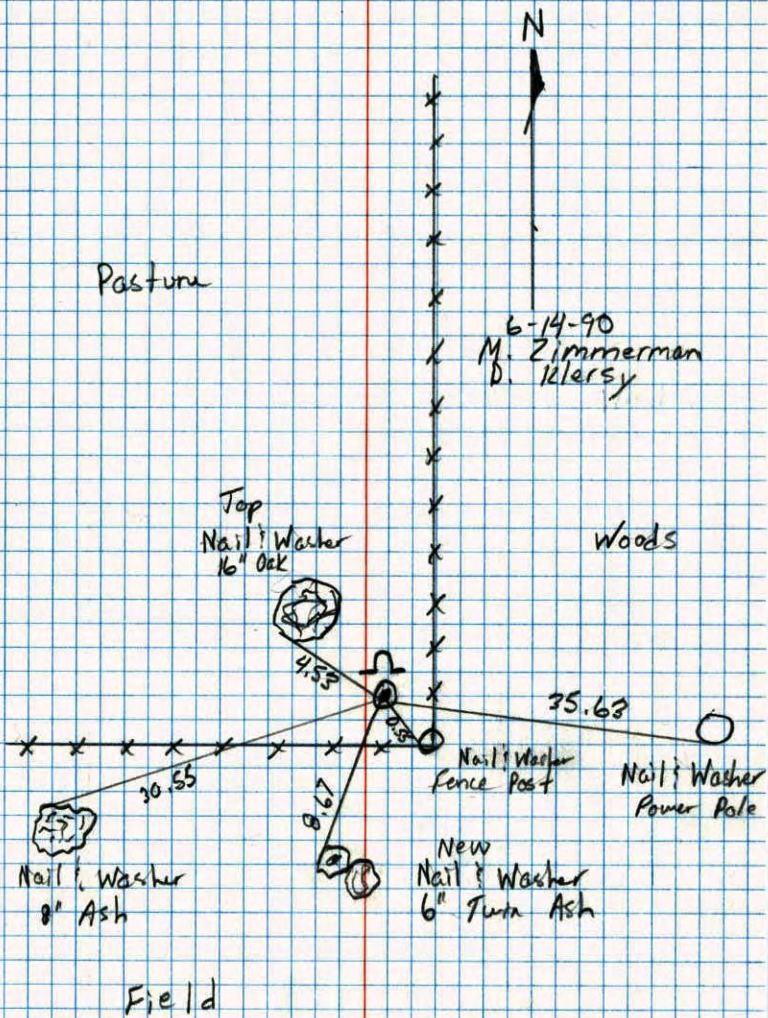 N
Pasture
6-14-90
M. Zimmerman
D. Klersy
Top
Nail & Washer
16" Oak
Woods
4.53
35.63
0.55
Nail & Washer
Fence Post
Nail & Washer
Power Pole
30.55
8.67
New
Nail & Washer
6" Twin Ash
Nail & Washer
8" Ash
Field